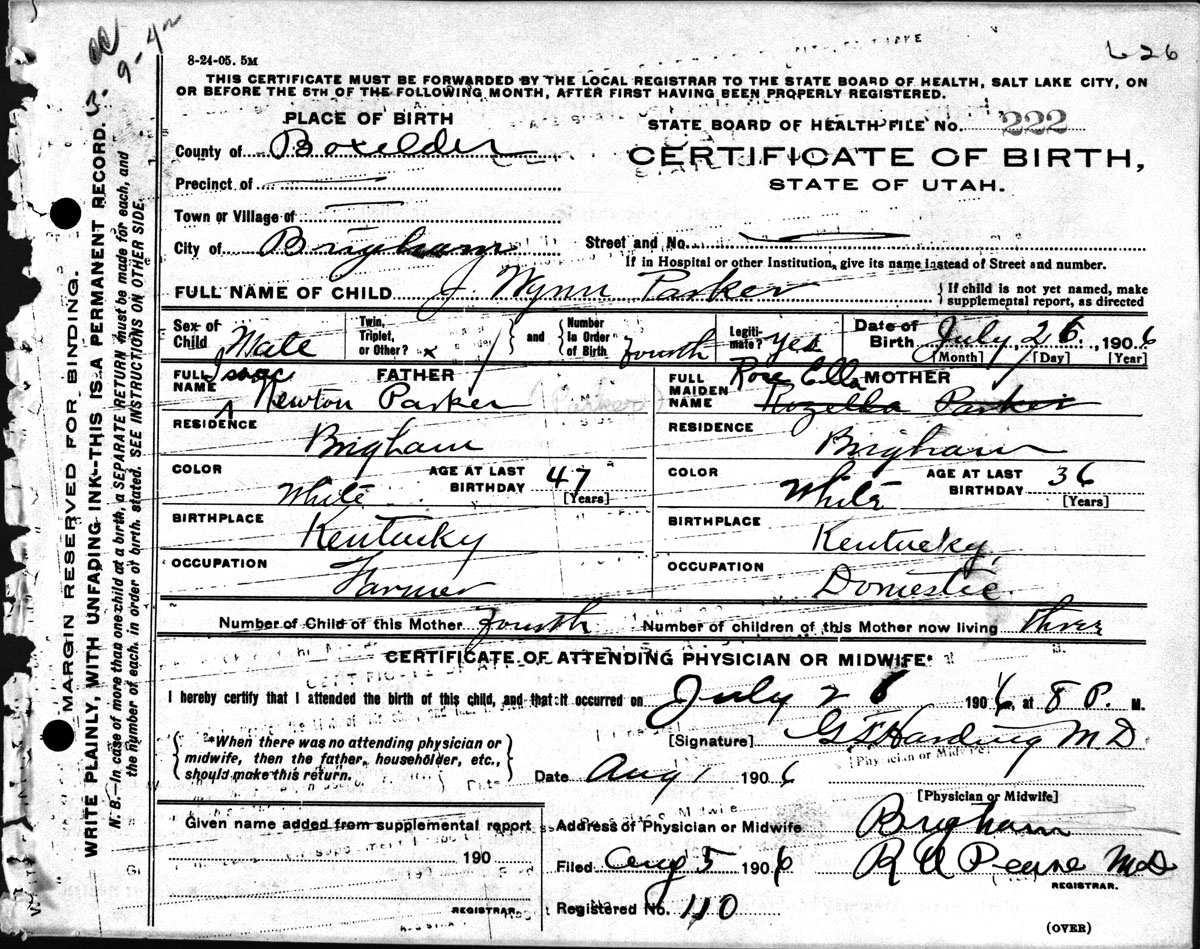 8-24-05. 5M
226
THIS CERTIFICATE MUST BE FORWARDED BY THE LOCAL REGISTRAR TO THE STATE BOARD OF HEALTH, SALT LAKE CITY, ON
OR BEFORE THE 5TH OF THE FOLLOWING MONTH, AFTER FIRST HAVING BEEN PROPERLY REGISTERED.
PLACE OF BIRTH
STATE BOARD OF HEALTH FILE NO. 222
County of Boxelder
CERTIFICATE OF BIRTH,
Precinct of
STATE OF UTAH.
Town or Village of
City of Brigham Street and No.
If in Hospital or other Institution, give its name instead of Street and number.
FULL NAME OF CHILD J. Wynn Parker { If child is not yet named, make
supplemental report, as directed
Sex of Child Male Twin, Triplet, or Other? x } and { Number In Order of Birth fourth Legiti-mate? yes Date of Birth July, 26, 1906
[Month] [Day] [Year]
FULL NAME FATHER Isaac
Newton Parker (Parker)
FULL MAIDEN NAME MOTHER Rose Ella
Rozella Parker
RESIDENCE Brigham
RESIDENCE Brigham
COLOR White AGE AT LAST BIRTHDAY 47 [Years]
COLOR White AGE AT LAST BIRTHDAY 36 [Years]
BIRTHPLACE Kentucky
BIRTHPLACE Kentucky,
OCCUPATION Farmer
OCCUPATION Domestic
Number of Child of this Mother fourth Number of children of this Mother now living three
CERTIFICATE OF ATTENDING PHYSICIAN OR MIDWIFE*
I hereby certify that I attended the birth of this child, and that it occurred on July 26 1906, at 8 P. M.
{ *When there was no attending physician or
midwife, then the father, householder, etc.,
should make this return. }
[Signature] Harding M D
[Physician or Midwife]
Date Aug 1 1906
[Physician or Midwife]
Given name added from supplemental report
190
REGISTRAR.
Address of Physician or Midwife Brigham
Filed Aug 5 1906 R A Pearse MD
REGISTRAR.
Registered No. 110
(OVER)
MARGIN RESERVED FOR BINDING.
WRITE PLAINLY, WITH UNFADING INK--THIS IS A PERMANENT RECORD.
N. B.--In case of more than one child at a birth, a SEPARATE RETURN must be made for each, and
the number of each, in order of birth, stated. SEE INSTRUCTIONS ON OTHER SIDE.